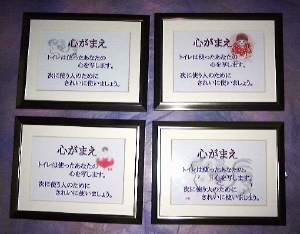 心がまえ
トイレは使ったあなたの
心を写します。
次に使う人のために
きれいに使いましょう。
心がまえ
トイレは使ったあなたの
心を写します。
次に使う人のために
きれいに使いましょう。
心がまえ
トイレは使ったあなたの
心を写します。
次に使う人のために
きれいに使いましょう。
心がまえ
トイレは使ったあなたの
心を写します。
次に使う人のために
きれいに使いましょう。